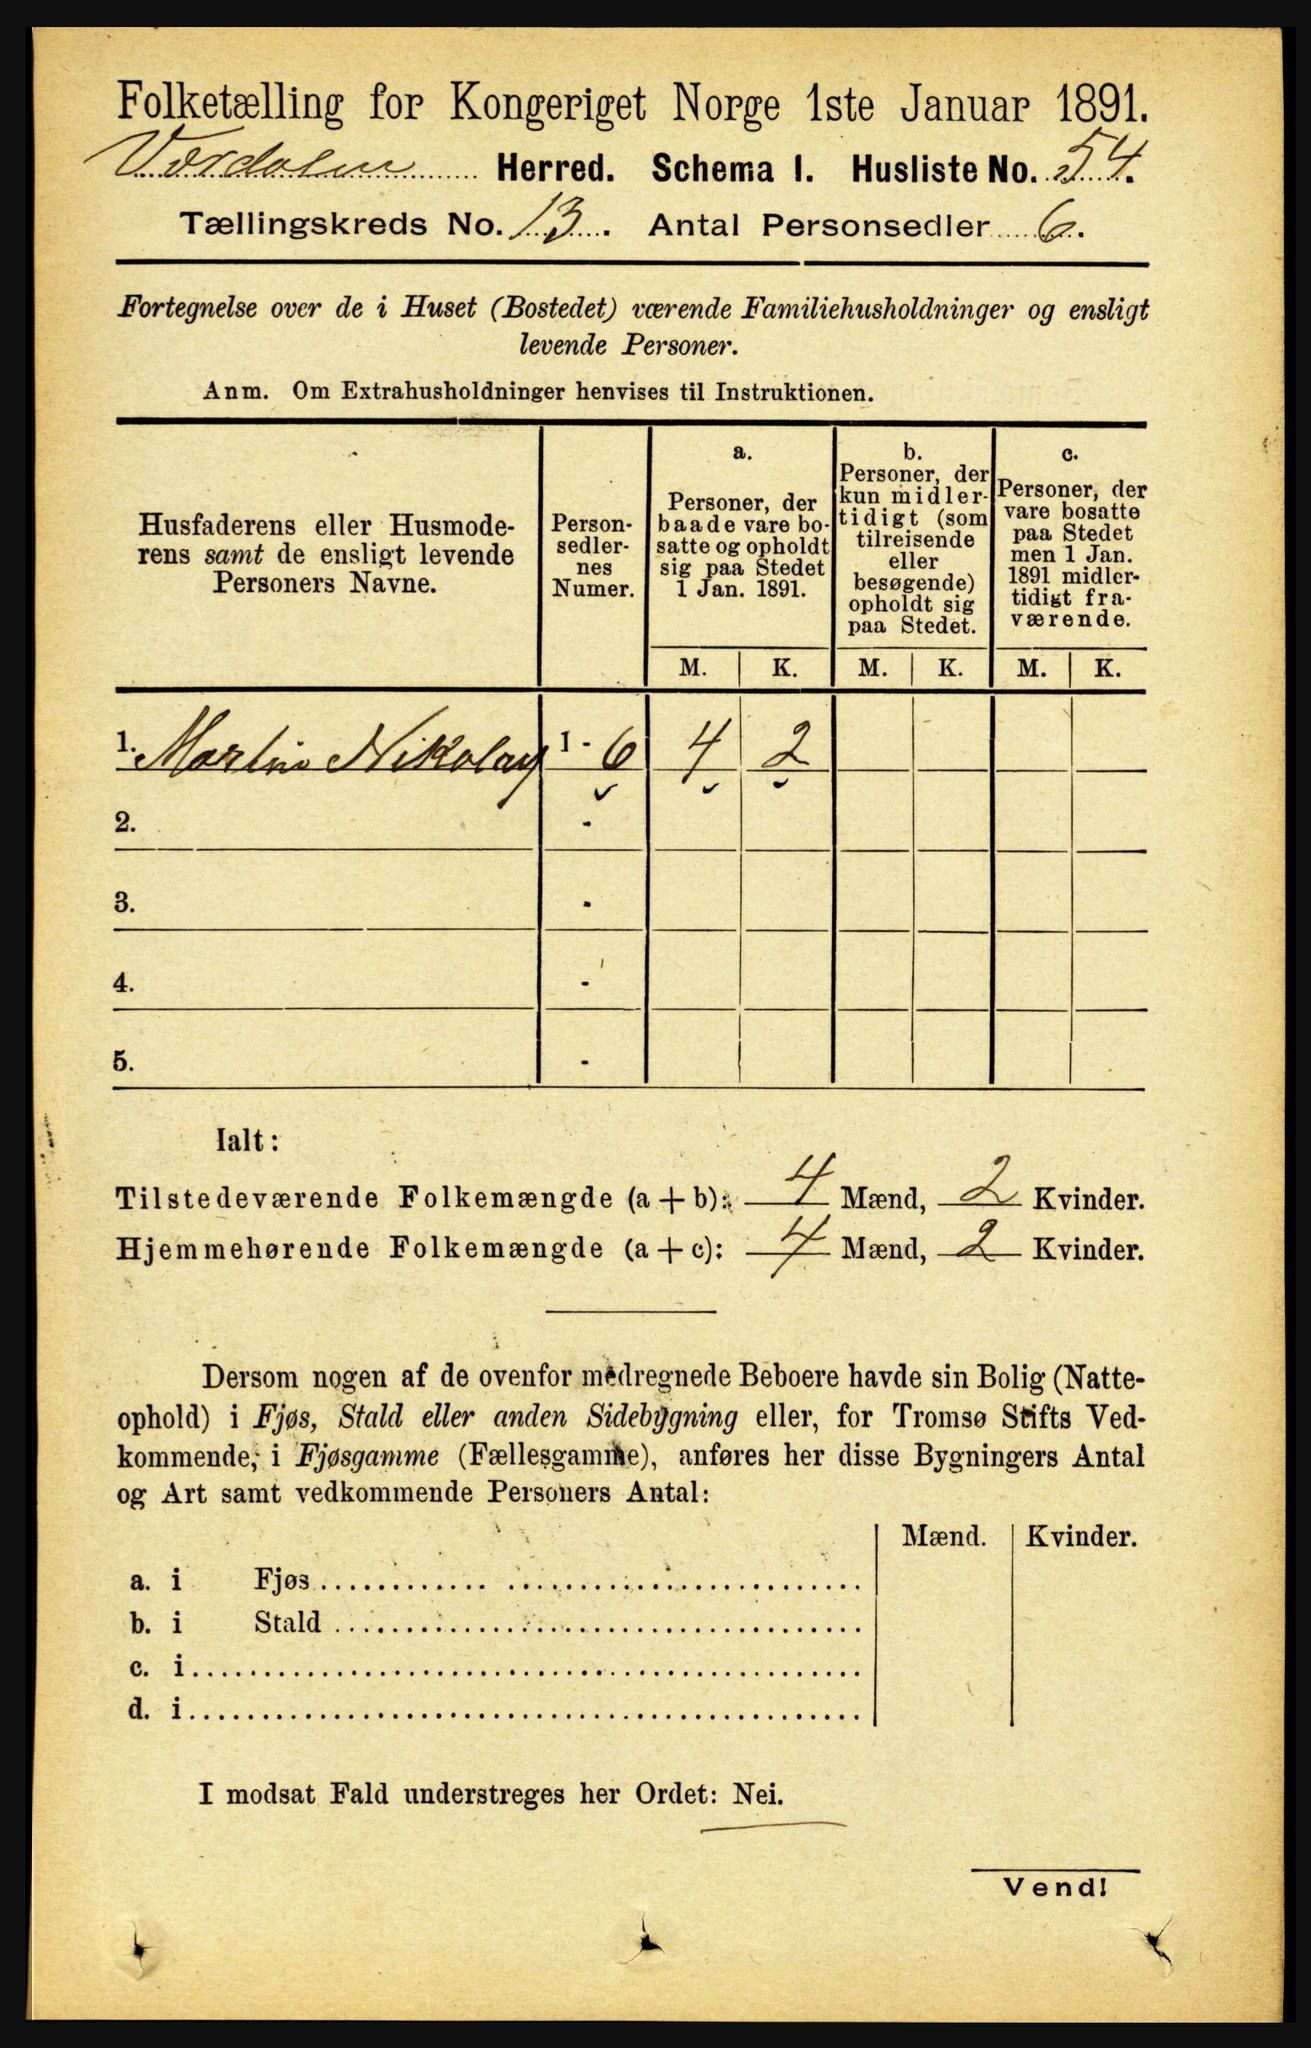 Folketælling for Kongeriget Norge 1ste Januar 1891.
Værdalen Herred. Schema I. Husliste No. 54.
Tællingskreds No. 13. Antal Personsedler 6.
Fortegnelse over de i Huset (Bostedet) værende Familiehusholdninger og ensligt
levende Personer.
Anm. Om Extrahusholdninger henvises til Instruktionen.
Husfaderens eller Husmode-
rens samt de ensligt levende
Personers Navne.
Person-
sedler-
nes
Numer.
a.
Personer, der
baade vare bo-
satte og opholdt
sig paa Stedet
1 Jan. 1891.
b.
Personer, der
kun midler-
tidigt (som
tilreisende
eller
besøgende)
opholdt sig
paa Stedet.
c.
Personer, der
vare bosatte
paa Stedet
men 1 Jan.
1891 midler-
tidigt fra-
værende.
M. K. M. K. M. K.
1. Martin Nikolay 1 - 6 4 2
2. -
3. -
4. -
5. -
Ialt:
Tilstedeværende Folkemængde (a + b): 4 Mænd, 2 Kvinder.
Hjemmehørende Folkemængde (a + c): 4 Mænd, 2 Kvinder.
Dersom nogen af de ovenfor medregnede Beboere havde sin Bolig (Natte-
ophold) i Fjøs, Stald eller anden Sidebygning eller, for Tromsø Stifts Ved-
kommende, i Fjøsgamme (Fællesgamme), anføres her disse Bygningers Antal
og Art samt vedkommende Personers Antal:
Mænd. Kvinder.
a. i Fjøs
b. i Stald
c. i
d. i
I modsat Fald understreges her Ordet: Nei.
Vend!